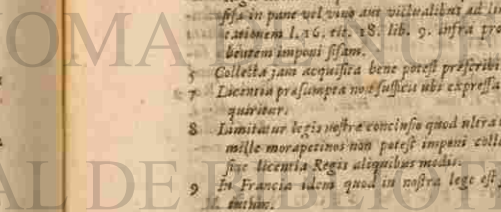 sisa in pane vel vino aut victualibus ad
l. 16. tit. 18. lib. 9. infra
bentem imponi sisam.
5 Collecta jam acquisita bene potest præscribi
7 Licentia præsumpta non sufficit ubi expressa
quiritur.
8 Limitatur legis nostræ conclusio quod ultra
mille morapetinos non potest imponi
sine licentia Regis aliquibus modis.
9 In Francia idem quod in nostra lege est